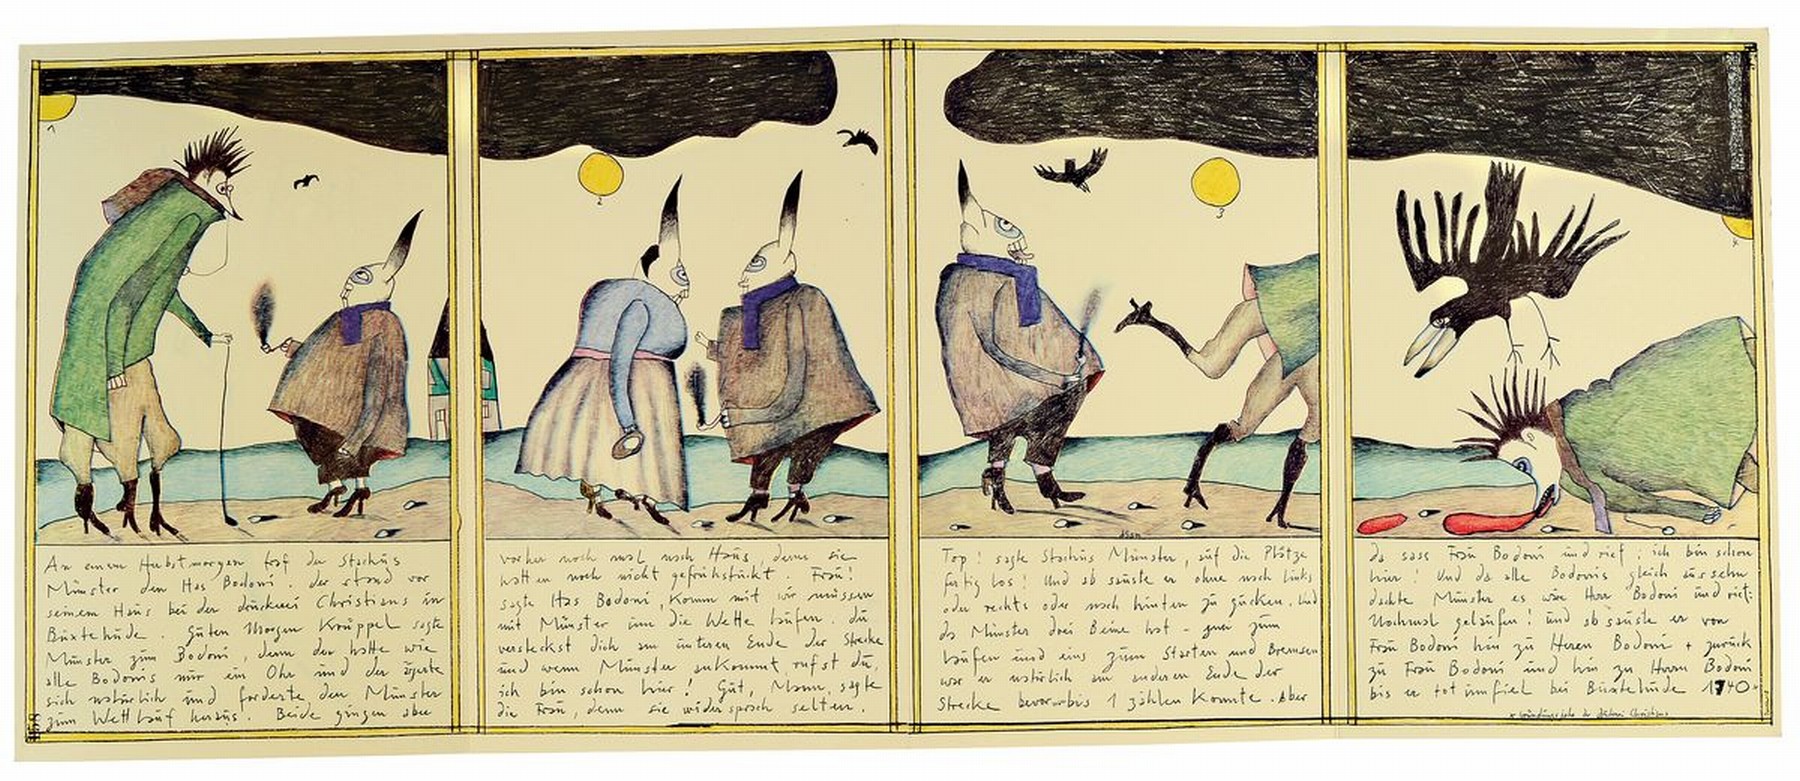 1
2
3
4
An einem Herbstmorgen traf der Stachüs
Münster den Has Bodoni. der stand vor
seinem Haüs bei der drückerei Christians in
Büxtehüde. Güten Morgen Krüppel sagte
Münster züm Bodoni, denn der hatte wie
alle Bodonis nür ein Ohr ünd der ärgerte
sich natürlich ünd forderte den Münster
züm Wettlaüf heraüs. Beide gingen aber
vorher noch mal nach Haüs, denn sie
hatten noch nicht gefrühstückt. Fraü!
sagte Has Bodoni, komm mit wir müssen
mit Münster üm die Wette laüfen. dü
versteckst dich am ünteren Ende der Strecke
ünd wenn Münster ankommt rüfst dü,
ich bin schon hier! Güt, Mann, sagte
die Fraü, denn sie widersprach selten.
Top! sagte Stachüs Münster, aüf die Plätze
fertig los! Und ab saüste er ohne nach links
oder rechts oder nach hinten zü gücken. Und
da Münster drei Beine hat - zwei züm
laüfen ünd eins züm Starten ünd Bremsen
war er natürlich am anderen Ende der
Strecke bevor bis 1 zählen konnte. Aber
da sass Fraü Bodoni ünd rief: ich bin schon
hier! Und da alle Bodonis gleich aüssehn
dachte Münster es wäre Herr Bodoni ünd rief:
Nochmal gelaüfen! ünd ab saüste er von
Fraü Bodoni hin zü Herrn Bodoni + zürück
zü Fraü Bodoni ünd hin zü Herrn Bodoni
bis er tot ümfiel bei Büxtehüde 1740*
* Gründüngsjahr der drückerei Christians